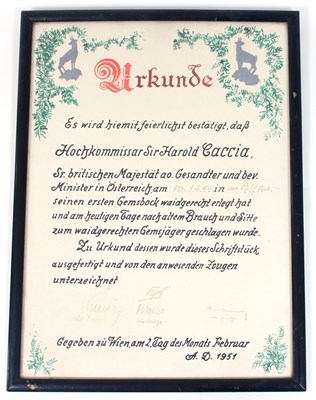 Urkunde
Es wird hiemit feierlichst bestätigt, daß
Hochkommissar Sir Harold Caccia,
Sr. britischen Majestät ao. Gesandter und bev.
Minister in Österreich, am in
seinen ersten Gemsbock waidgerecht erlegt hat
und am heutigen Tage nach altem Brauch und Sitte
zum waidgerechten Gemsjäger geschlagen wurde.
Zu Urkund dessen wurde dieses Schriftstück
ausgefertigt und von den anwesenden Zeugen
unterzeichnet
Gegeben zu Wien, am 2. Tag des Monats Februar
A. D. 1951